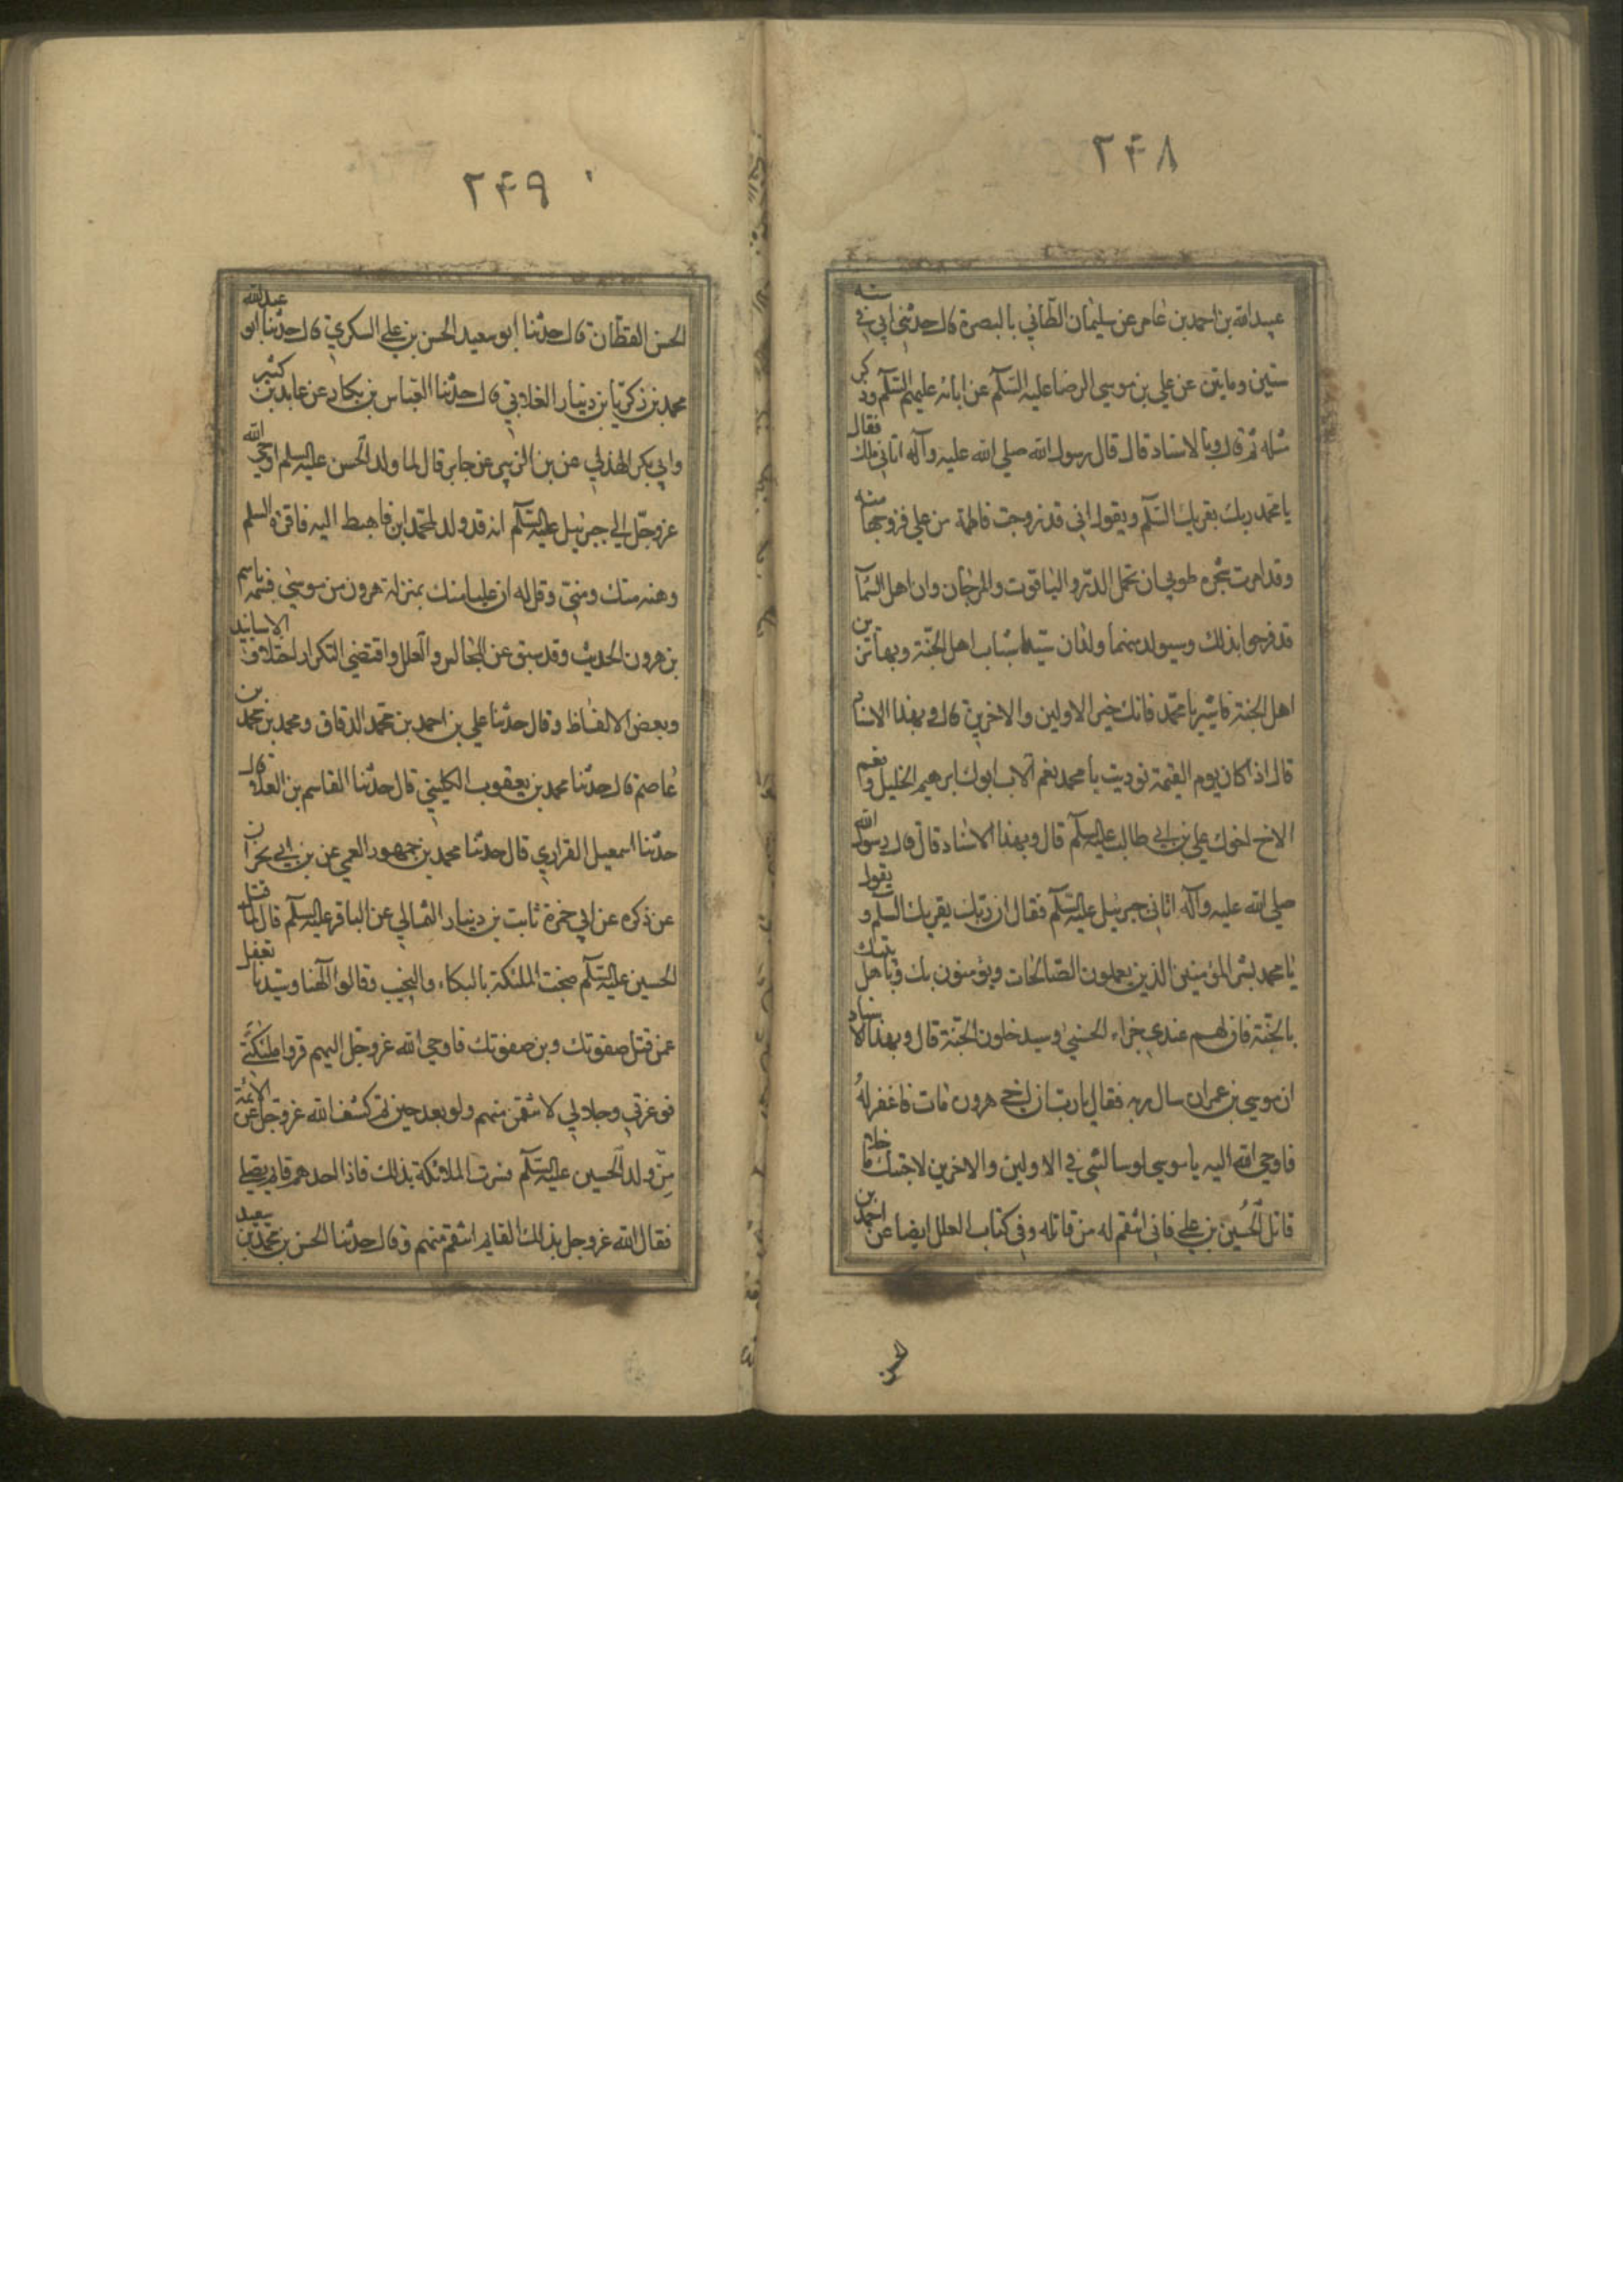 ٢۴٨
عبيد الله بن احمد بن عامر عن سليمان الطائي بالبصرة قال حدثني ابي في سنه
ستين وماتين عن علي بن موسي الرضا عليه السلم عن ابائه عليهم السلم وذكر
مثله ثم قال وبالاسناد قال قال رسول الله صلي الله عليه وآله اتاني ملك فقال
يا محمد ربك يقريك السلم ويقول اني قد زوجت فاطمة من علي فزوجها منه
وقد امرت شجره طوبي ان تحمل الدر والياقوت والمرجان وان اهل السمآ
قد فرحوا بذلك وسيولد منهما ولدان سيدا شباب اهل الجنة وبهما تزين
اهل الجنة فابشر يا محمد فانك خير الاولين والاخرين قال وبهذا الاسناد
قال اذا كان يوم القيمة نوديت يا محمد نعم الاب ابوك ابرهيم الخليل ونعم
الاخ اخوك علي بن ابي طالب عليه السلم قال وبهذا الاسناد قال قال رسول الله
صلي الله عليه وآله اتاني جبرئيل عليه السلم فقال ان ربك يقريك السلم ويقول
يا محمد بشر المؤمنين الذين يعملون الصالحات ويؤمنون بك وباهل بيتك
بالجنة فان لهم عندي جزاء الحسني وسيدخلون الجنة قال وبهذا الاسناد
ان موسي بن عمران سال ربه فقال يا رب ان اخي هرون مات فاغفر له
فاوحي الله اليه يا موسي لو سالتني في الاولين والاخرين لاجبتك ما خلا
قاتل الحسين بن علي فاني انتقم له من قاتله وفي كتاب العلل ايضا عن احمد بن
الحسن
٢۴٩
الحسن القطان قال حدثنا ابو سعيد الحسن بن علي السكري قال حدثنا ابو عبد الله
محمد بن زكريا بن دينار الغلابي قال حدثنا العباس بن بكار عن عابد بن كثير
وابي بكر الهذلي عن بن الزبير عن جابر قال لما ولد الحسن عليه السلم اوحي الله
عز وجل الي جبرئيل عليه السلم انه قد ولد لمحمد ابن فاهبط اليه فاقرئه السلم
وهنه منك ومني وقل له ان عليا منك بمنزلة هرون من موسي فسمه باسم
بن هرون الحديث وقد سبق عن المجالس والعلل واقتضي التكرار اختلاف الاسانيد
وبعض الالفاظ وقال حدثنا علي بن احمد بن محمد الدقاق ومحمد بن محمد بن
عاصم قال حدثنا محمد بن يعقوب الكليني قال حدثنا القاسم بن العلا قال
حدثنا اسمعيل الفزاري قال حدثنا محمد بن جمهور العمي عن بن ابي نجران
عن ذكره عن ابي حمزة ثابت بن دينار الثمالي عن الباقر عليه السلم قال لما قتل
الحسين عليه السلم ضجت الملئكة بالبكاء والنحيب وقالوا الهنا وسيدنا تغفل
عمن قتل صفوتك وبن صفوتك فاوحي الله عز وجل اليهم قروا ملئكتي
فوعزتي وجلالي لانتقمن منهم ولو بعد حين ثم كشف الله عز وجل عن الائمة
من ولد الحسين عليه السلم فسرت الملائكة بذلك فاذا احدهم قايم يصلي
فقال الله عز وجل بذلك القايم انتقم منهم وقال حدثنا الحسن بن محمد بن سعيد